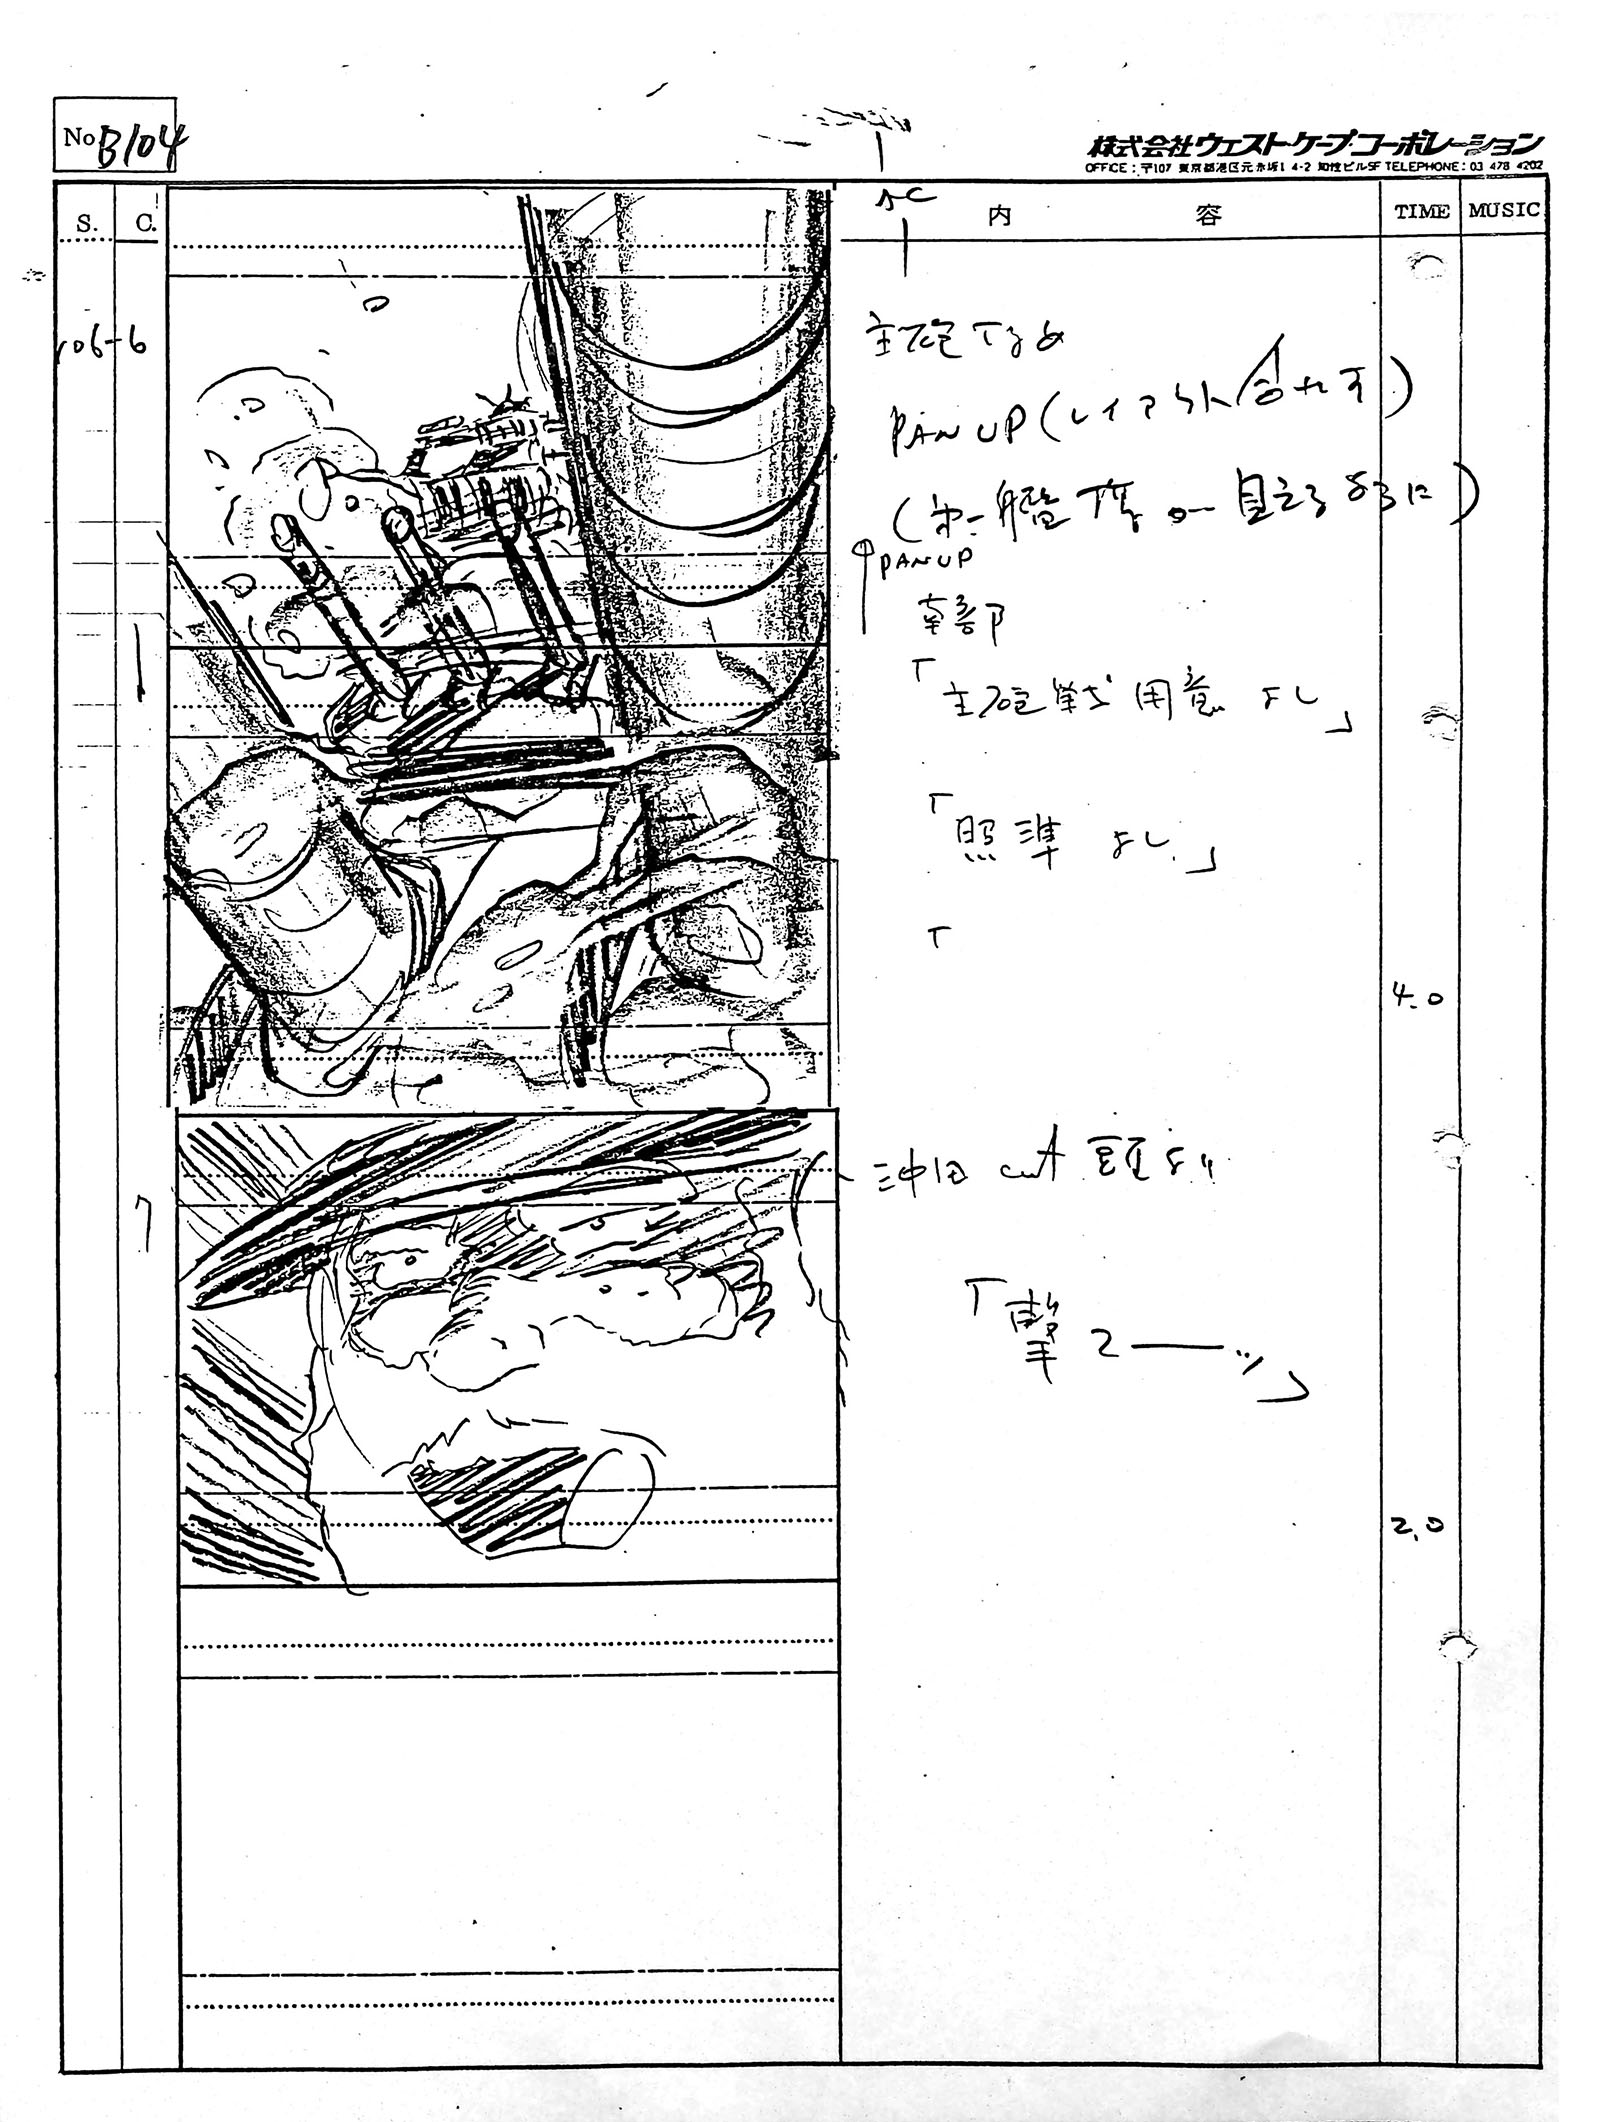 No. B104
株式会社ウェスト・ケープ・コーポレーション
OFFICE：〒107 東京都港区元赤坂1 4-2 知性ビル5F TELEPHONE：03 478 4202
S. C. 内容 TIME MUSIC
106-6
主砲
PAN UP(レイアウト合わす)
PAN UP
幹部
「主砲 用意 よし」
「照準 よし」
「
4.0
7
沖田 cut 頭より
「撃てーーッ」
2.0